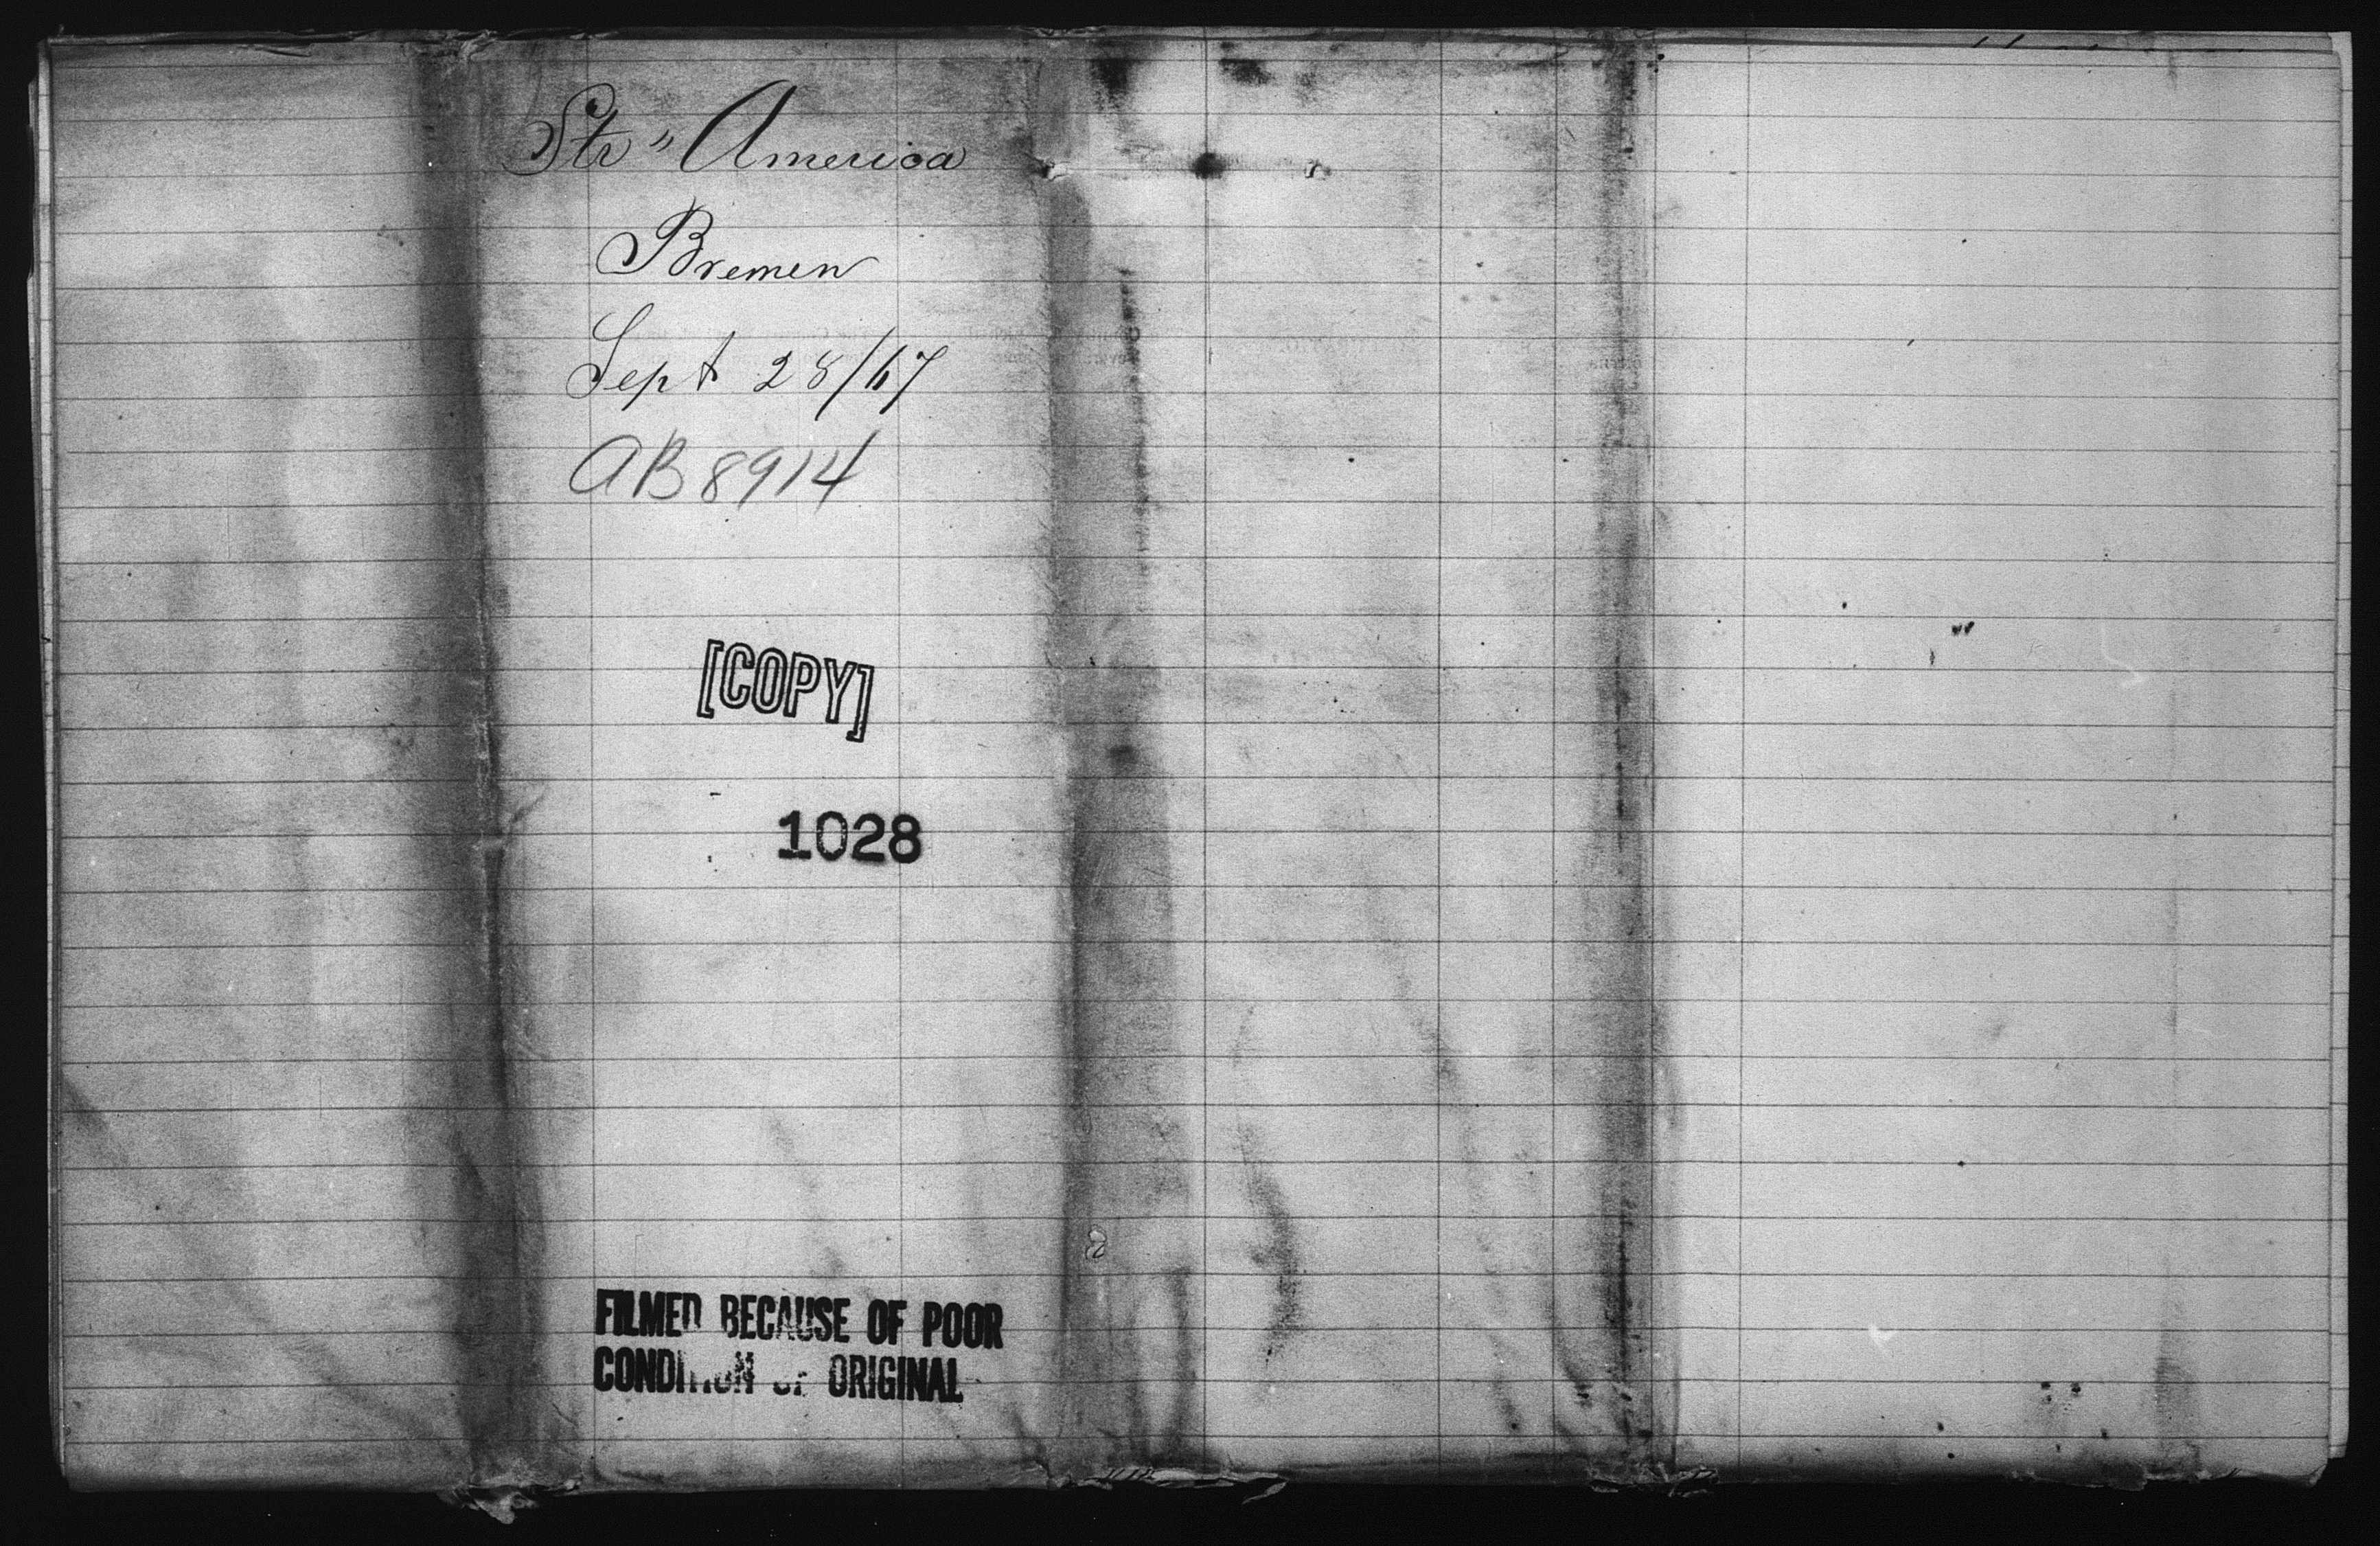 Str " America
Bremen
Sept 28/67
AB 8914
[COPY]
1028
FILMED BECAUSE OF POOR
CONDITION OF ORIGINAL